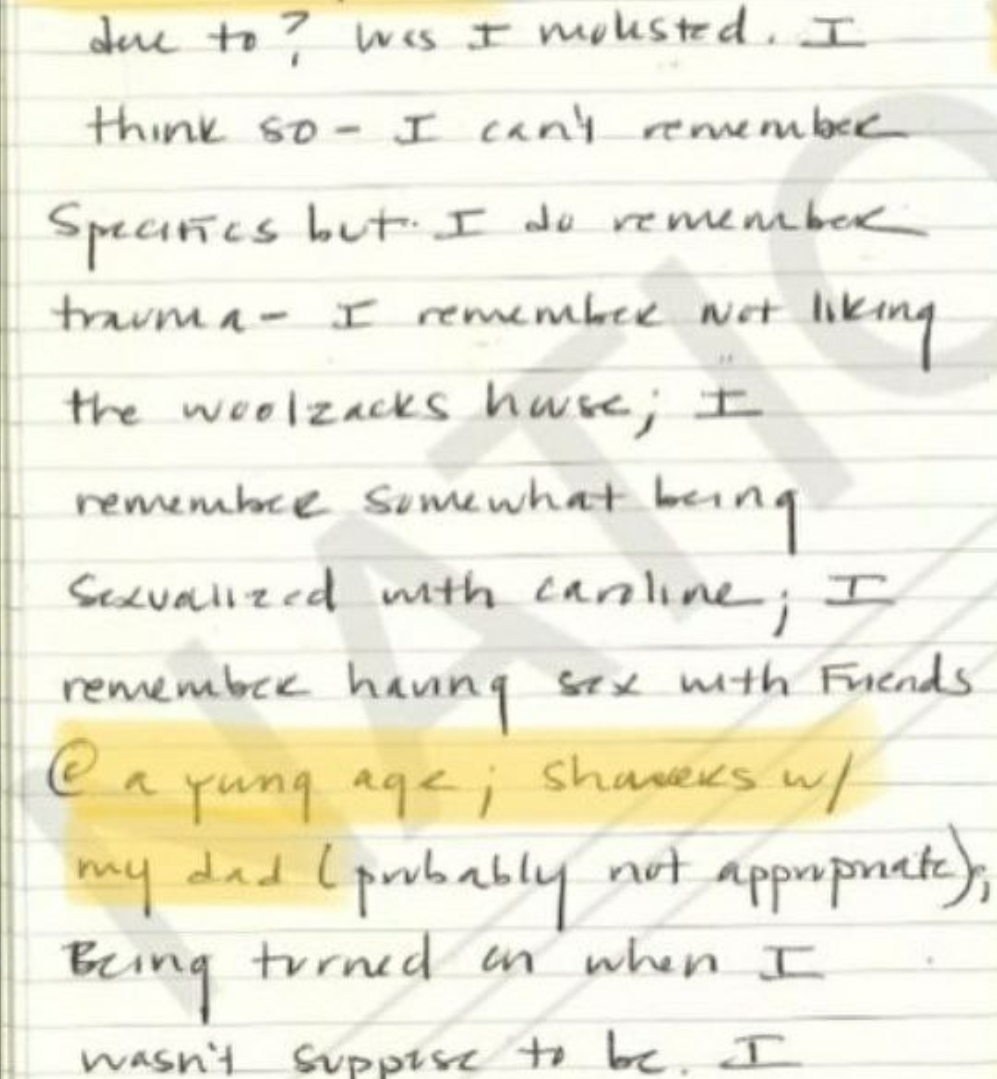 due to? Was I molested. I
think so - I can't remember
specifics but I do remember
trauma - I remember not liking
the woolzacks house; I
remember somewhat being
sexualized with caroline; I
remember having sex with Friends
@ a yung age; showers w/
my dad (probably not appropriate);
Being turned on when I
wasn't suppose to be. I